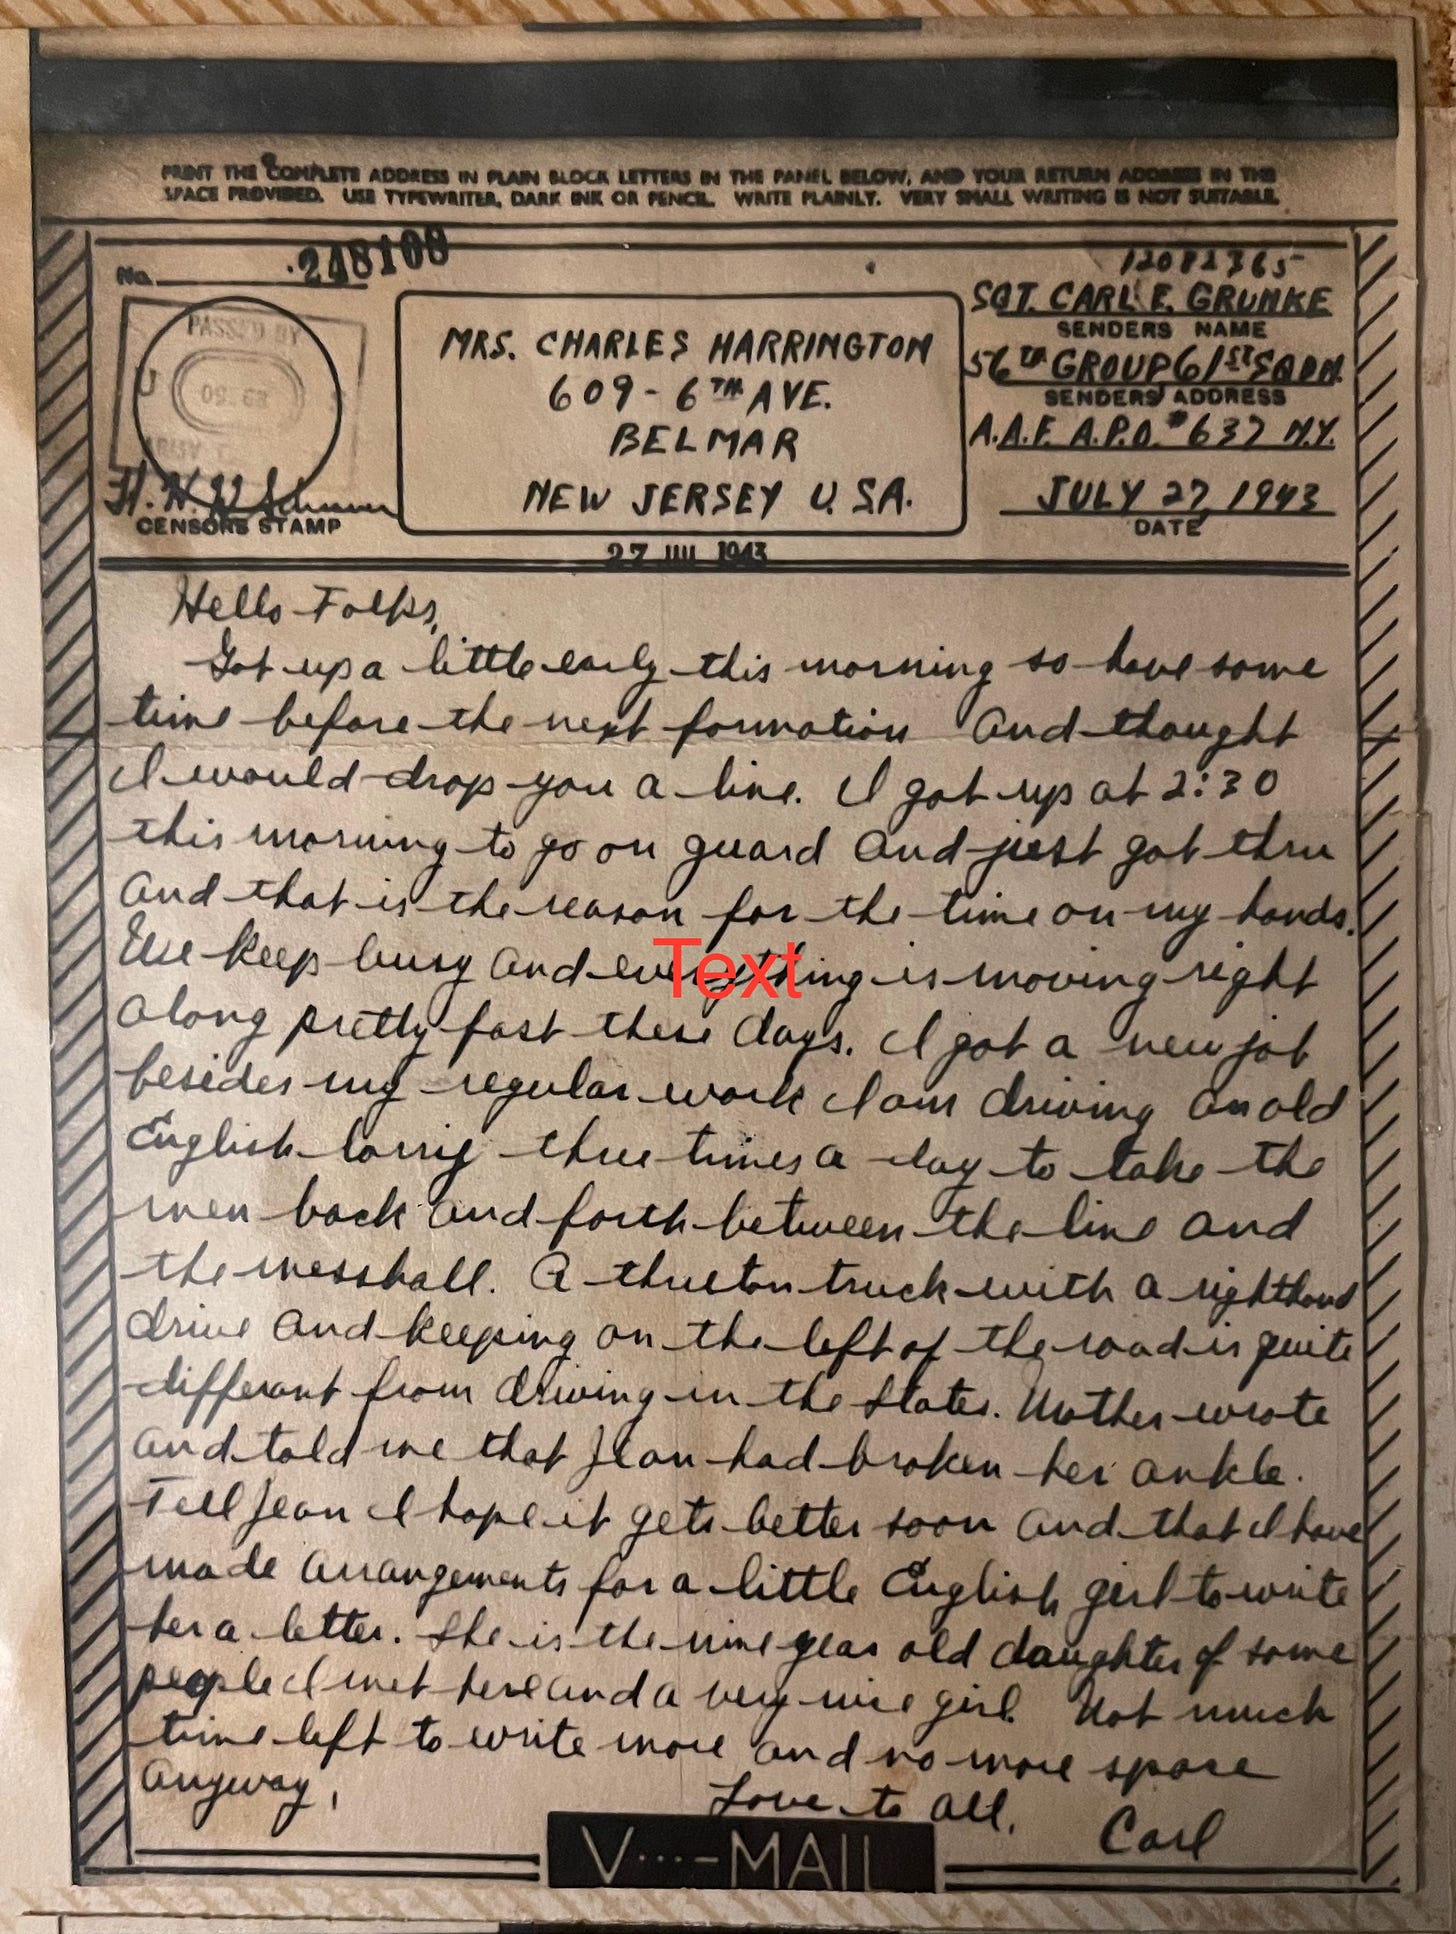 PRINT THE COMPLETE ADDRESS IN PLAIN BLOCK LETTERS IN THE PANEL BELOW, AND YOUR RETURN ADDRESS IN THE
SPACE PROVIDED. USE TYPEWRITER, DARK INK OR PENCIL. WRITE PLAINLY. VERY SMALL WRITING IS NOT SUITABLE.
No. 248108
PASSED BY
U S
ARMY
CENSORS STAMP
MRS. CHARLES HARRINGTON
609 - 6TH AVE.
BELMAR
NEW JERSEY U.S.A.
12082365
SGT. CARL E. GRUNKE
SENDERS NAME
56TH GROUP 61ST SQDN.
SENDERS ADDRESS
A.A.F. A.P.O. #637 N.Y.
JULY 27, 1943
DATE
27 JUL 1943
Hello Folks,
Got up a little early this morning so have some
time before the next formation and thought
I would drop you a line. I got up at 2:30
this morning to go on guard and just got thru
and that is the reason for the time on my hands.
We keep busy and everything is moving right
along pretty fast these days. I got a new job
besides my regular work I am driving an old
English lorry three times a day to take the
men back and forth between the line and
the messhall. A three ton truck with a righthand
drive and keeping on the left of the road is quite
different from driving in the States. Mother wrote
and told me that Jean had broken her ankle.
Tell Jean I hope it gets better soon and that I have
made arrangements for a little English girl to write
her a letter. She is the nine year old daughter of some
people I met here and a very nice girl. Not much
time left to write more and no more space
anyway,
Love to all.
Carl
V···-MAIL
Text